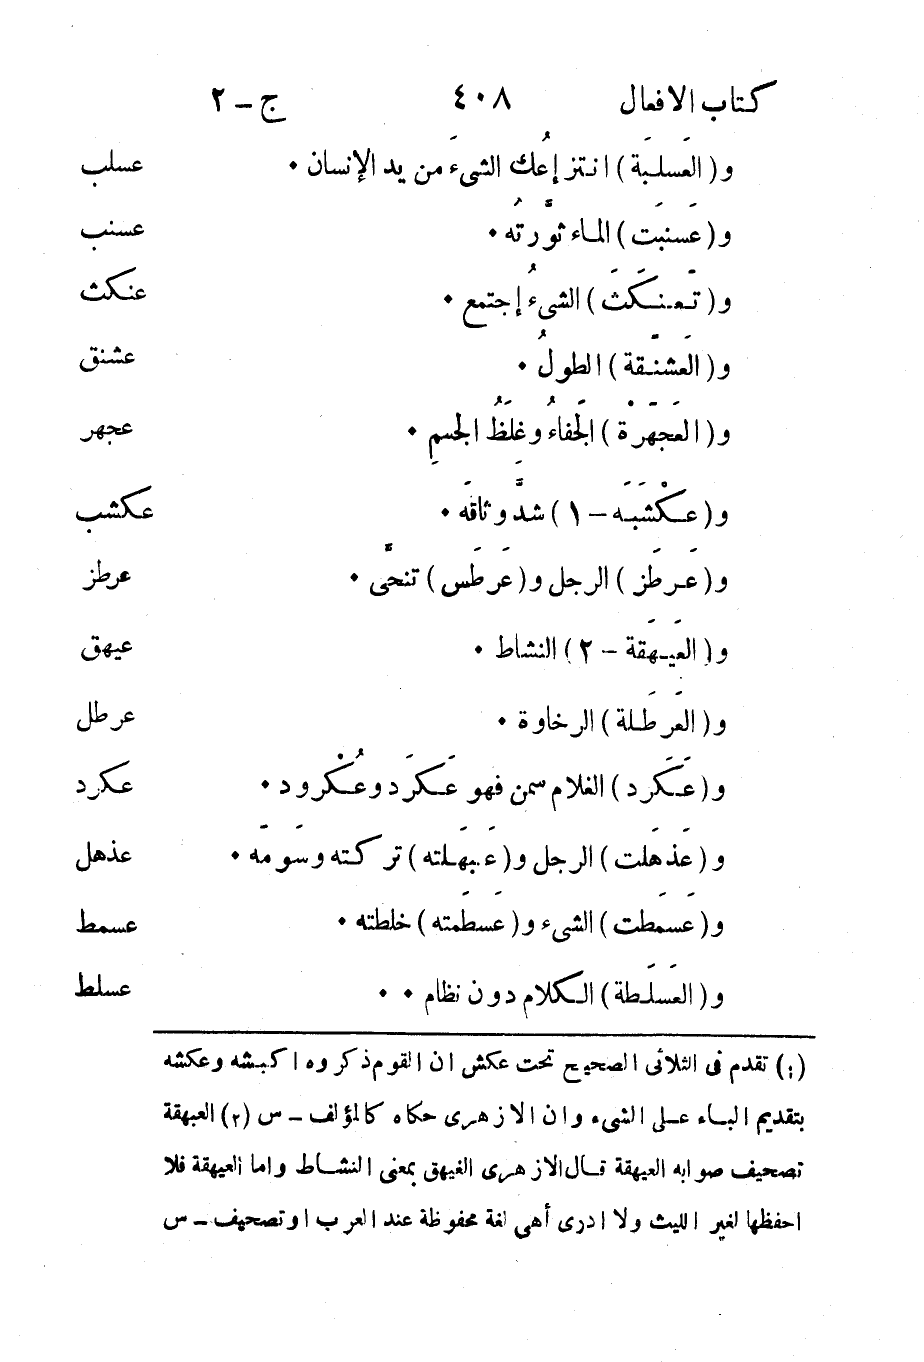 كتاب الافعال ٤٠٨ ج – ٢
و (العَسلَبَة) انتزاعُك الشىءَ من يد الإنسان • عسلب
و (عَسنَبت) الماء ثوَّرتُه • عسنب
و (تَّعنكَثَ) الشىءُ إجتمع • عنكث
و (العَشنَّقة) الطولُ • عشنق
و (العَجَهّرْة) الجَفاءُ وغلَظُ الجسمِ • عجهر
و (عَكْشبَه – ١) شدَّ وثاقَه • عكشب
و (عَرطَز) الرجل و (عَرطَس) تنحَّى • عرطز
و (العَيَهَقة – ٢) النشاط • عيهق
و (العَرطَلة) الرخاوة • عرطل
و (عَكَرد) الغلام سمن فهو عَكرَد وعُكْرود • عكرد
و (عَذهَلت) الرجل و (عَبهَلته) تركته وسَومَه • عذهل
و (عَسمَطت) الشىء و (عَسطَمته) خلطته • عسمط
و (العَسلَطة) الكلام دون نظام • • عسلط
(١) تقدم فى الثلاثى الصحيح تحت عكش ان القوم ذكروه اكبشه وعكشه
بتقديم الباء على الشىء وان الازهرى حكاه كالمؤلف – س (٢) العبهقة
تصحيف صوابه العيهقة قال الازهرى الغيهق بمعنى النشاط واما العيهقة فلا
احفظها لغير الليث ولا ادرى أهى لغة محفوظة عند العرب او تصحيف – س